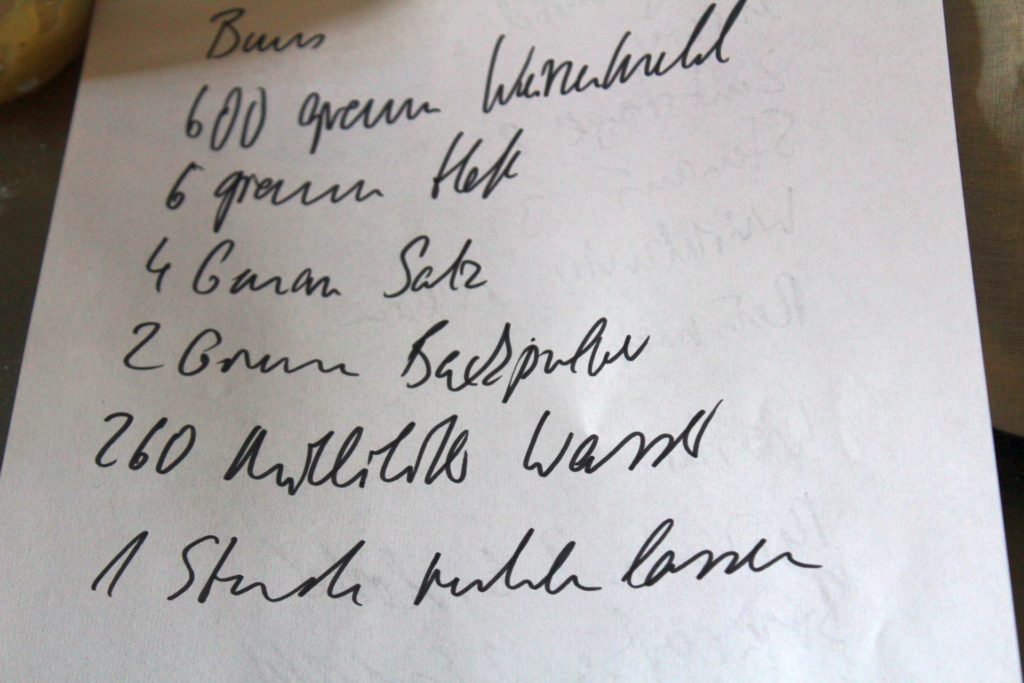 Buns
600 gramm Weizenmehl
6 gramm Hefe
4 Gramm Salz
2 Gramm Backpulver
260 Milliliter Wasser
1 Stunde ruhen lassen